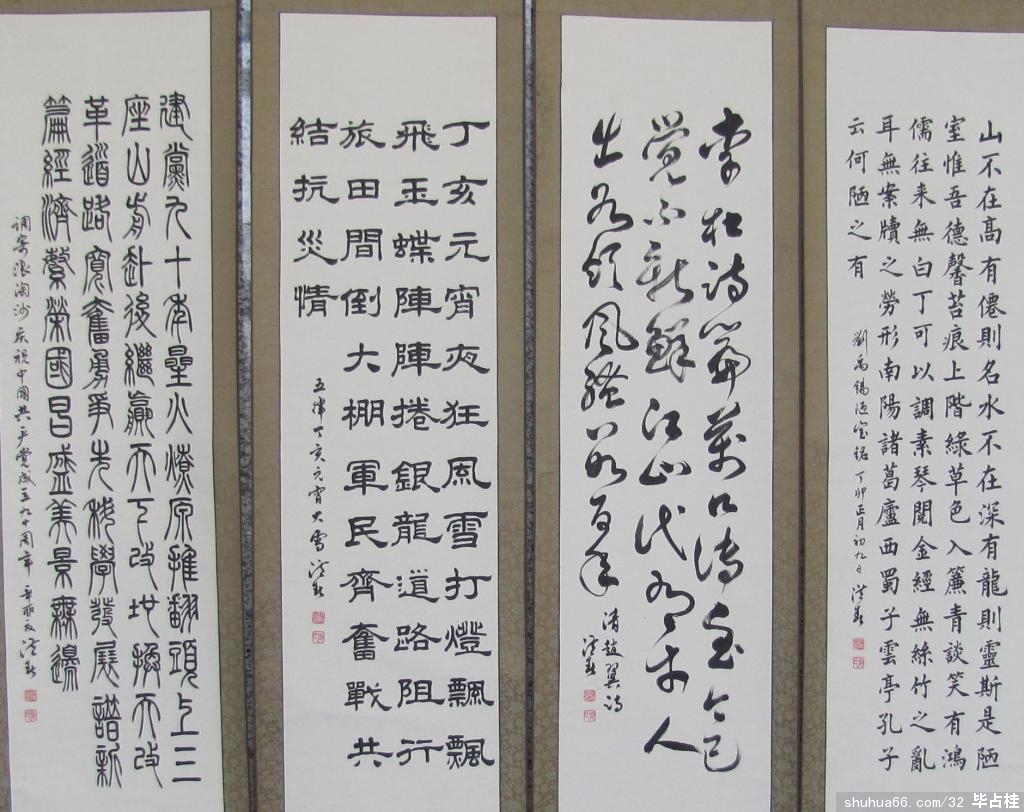 山不在高有僊則名水不在深有龍則靈斯是陋
室惟吾德馨苔痕上階綠草色入簾青談笑有鴻
儒往来無白丁可以調素琴閱金經無絲竹之亂
耳無案牘之勞形南陽諸葛廬西蜀子雲亭孔子
云何陋之有
劉禹錫陋室銘 丁卯正月初九日
李杜詩篇萬口傳至今已
覺不新鮮江山代有才人
出各領風騷數百年
清趙翼詩
丁亥元宵夜狂風雪打燈飄飄
飛玉蝶陣陣捲銀龍道路阻行
旅田間倒大棚軍民齊奮戰共
結抗災情
五律丁亥元宵大雪
建黨九十年星火燎原推翻頭上三
座山前赴後繼贏天下改地換天改
革道路寬奮勇爭先科學發展譜新
篇經濟繁榮國昌盛美景無邊
调寄浪淘沙庆祝中國共产党成立九十周年 辛卯夏
shuhua66.com/32 毕占桂